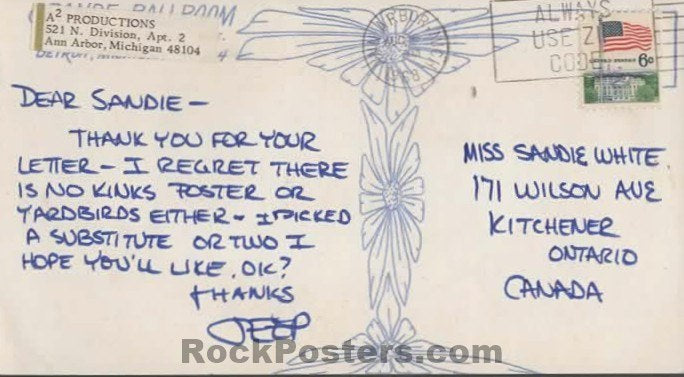 GRANDE BALLROOM
A² PRODUCTIONS
521 N. Division, Apt. 2
Ann Arbor, Michigan 48104
ALWAYS
USE ZIP
CODE
6¢
DEAR SANDIE —
THANK YOU FOR YOUR
LETTER — I REGRET THERE
IS NO KINKS POSTER OR
YARDBIRDS EITHER — I PICKED
A SUBSTITUTE OR TWO I
HOPE YOU'LL LIKE, OK?
THANKS
JEEP
MISS SANDIE WHITE
171 WILSON AVE
KITCHENER
ONTARIO
CANADA
RockPosters.com